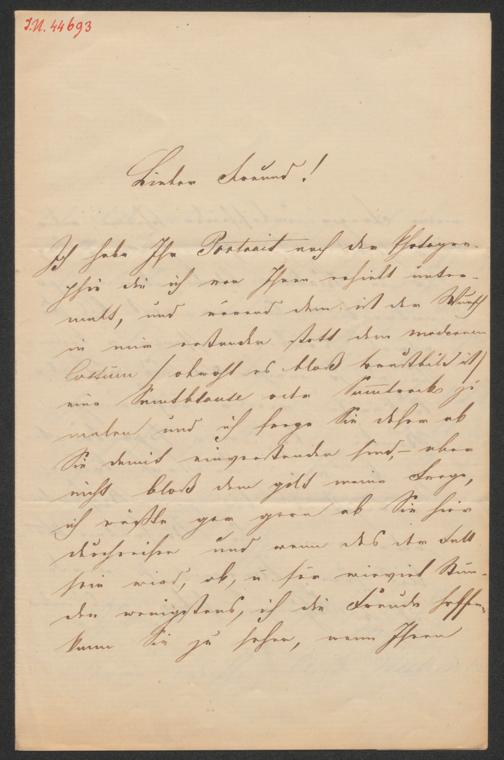 J.N. 44693
Lieber Freund!
Ich habe Ihr Portrait nach der Photogra-
phie die ich von Ihnen erhielt unter-
malt, und während dem ist der Wunsch
in mir entstanden statt dem modernen
Costüm (obwohl es bloß Brustbild ist)
eine Samtblouse oder Samtrock zu
malen und ich frage Sie daher ob
Sie damit einverstanden sind, – aber
nicht bloß dem gilt meine Frage,
ich wüßte gar gern ob Sie hier
durchreisen und wenn das der Fall
sein wird, ob, u für wieviel Stun-
den wenigstens, ich die Freude hoffen
kann Sie zu sehen, wenn Ihnen